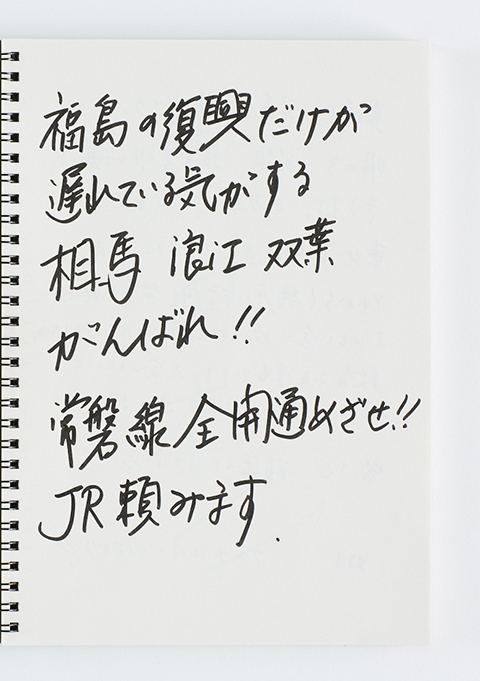 福島の復興だけが
遅れている気がする
相馬 浪江 双葉
がんばれ!!
常磐線 全開通めざせ!!
JR頼みます.